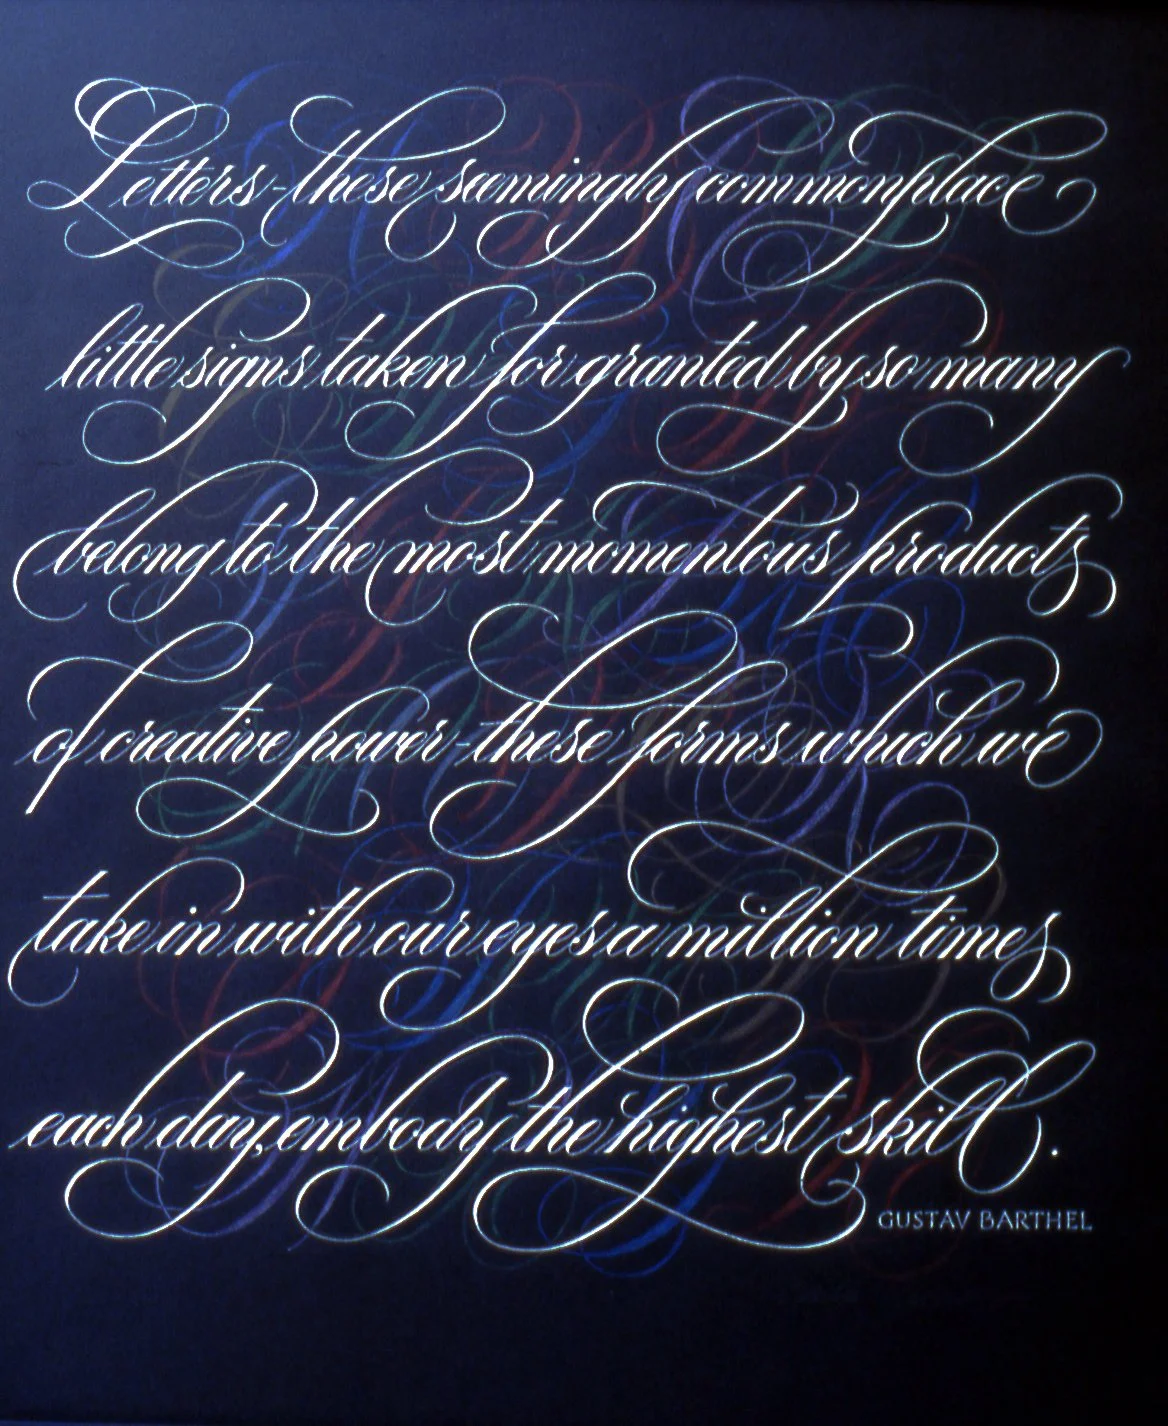 Letters-these seemingly commonplace
little signs taken for granted by so many
belong to the most momentous products
of creative power-these forms which we
take in with our eyes a million times
each day, embody the highest skill.
GUSTAV BARTHEL